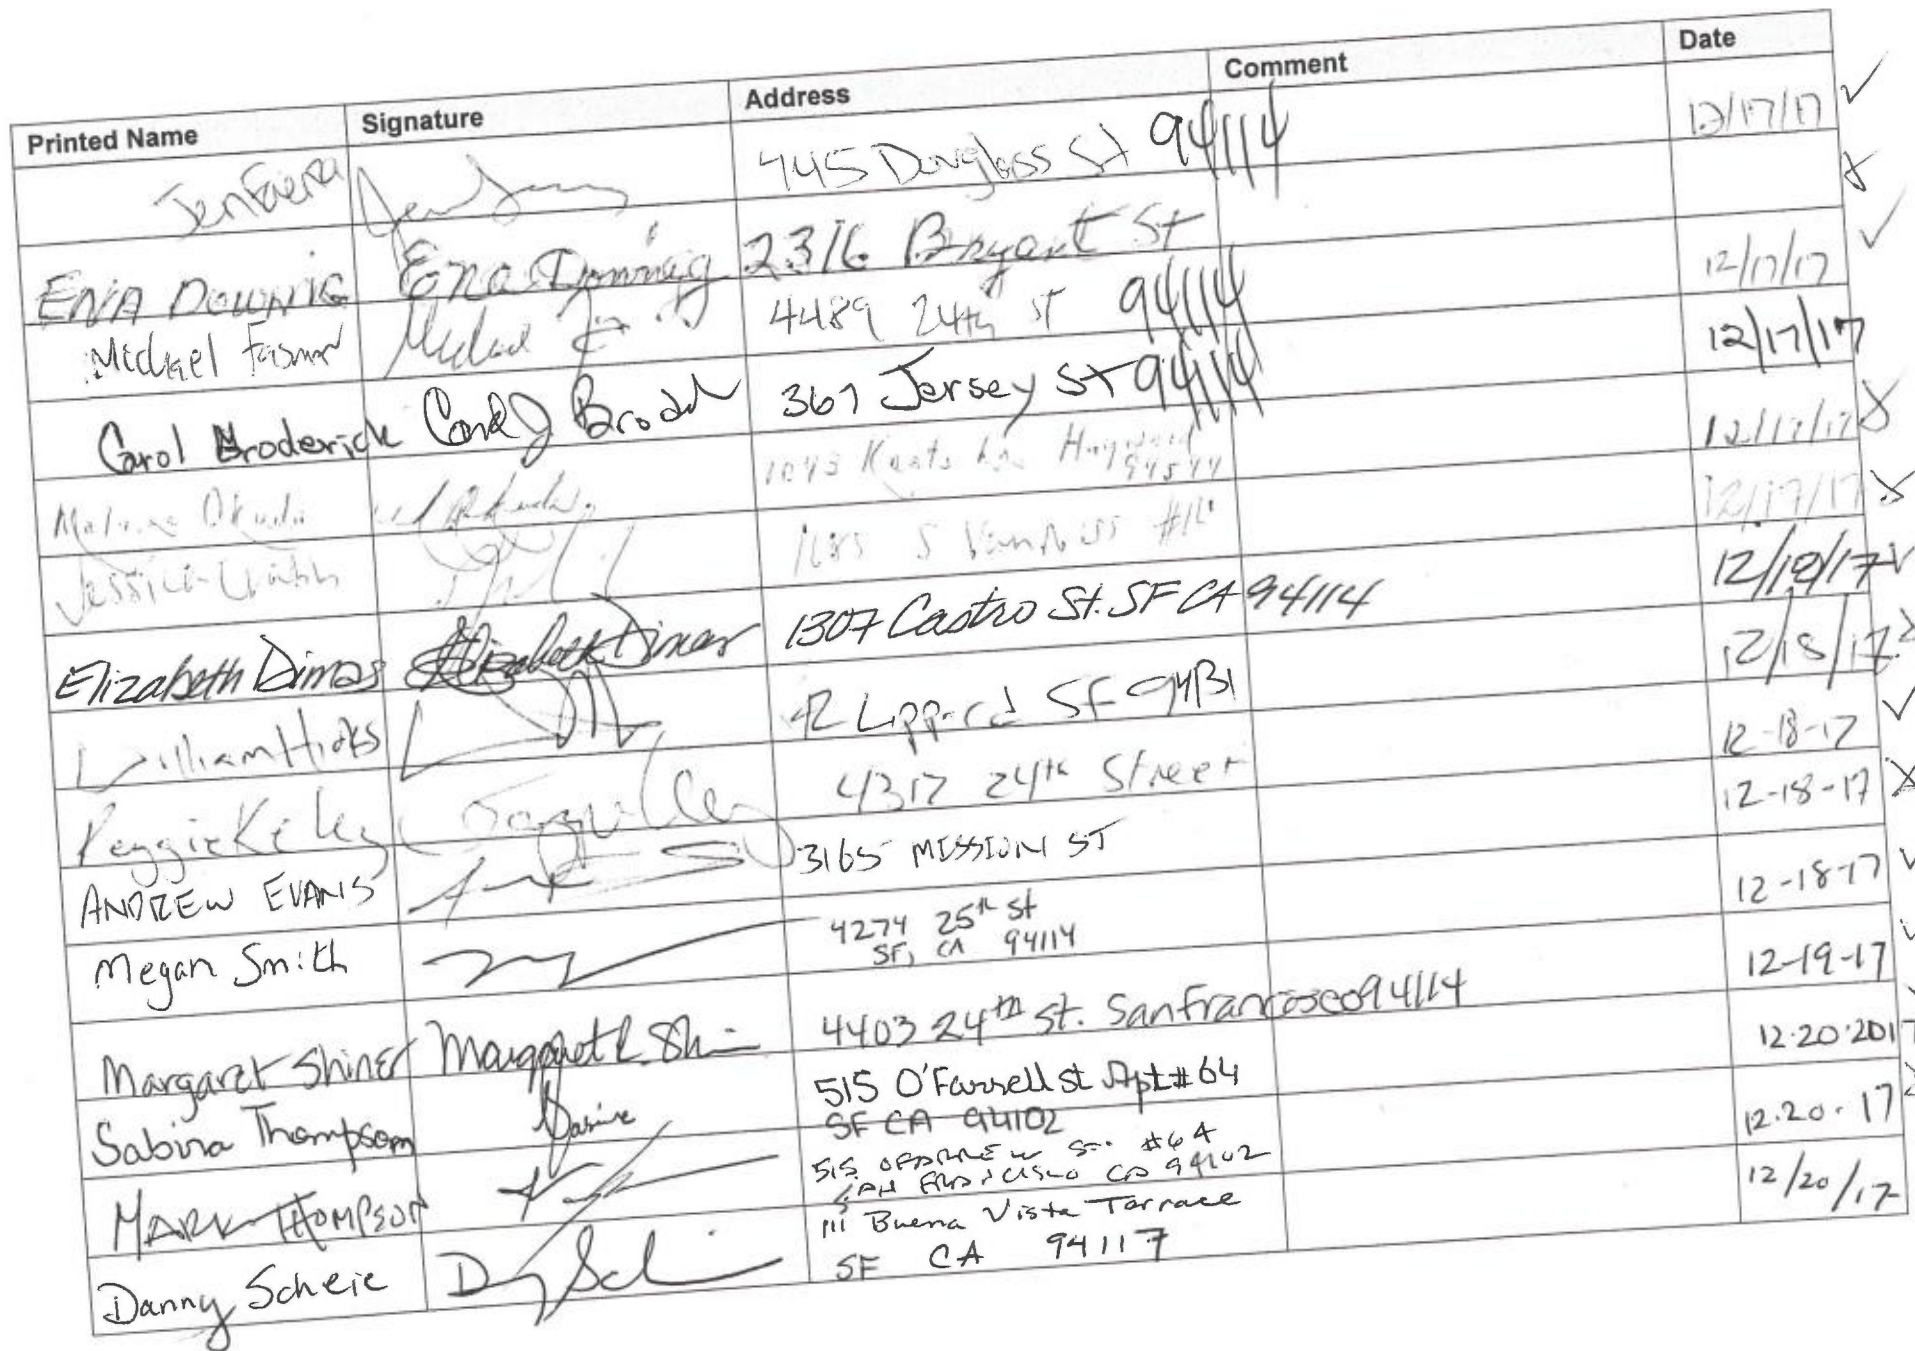 Printed Name Signature Address Comment Date
Jen 745 Douglass St 94114 12/17/17
ENA DOWNING Ena Downing 2316 Bryant St
Michael Michael 4489 24th ST 94114 12/17/17
Carol Broderick Carol J Brod 367 Jersey St 94114 12/17/17
Okuda 1043 Keats Ln Hayward 12/17/17
94544
Jessica S Van Ness 12/17/17
Elizabeth Dimas Elizabeth Dimas 1307 Castro St. SF CA 94114 12/18/17
William Hicks Lippard SF 94131 12/18/17
Reggie Kelley 4317 24th Street 12-18-17
ANDREW EVANS 3165 MISSION ST 12-18-17
Megan Smith 4274 25th St 12-18-17
SF, CA 94114
Margaret Shiner Margaret R Shi 4403 24th St. San Francisco 94114 12-19-17
Sabina Thompson Sabina 515 O'Farrell St Apt #64 12.20.2017
SF CA 94102
MARK THOMPSON 515 OFARRELL ST #64 12.20.17
SAN FRANCISCO CA 94102
Danny Scheie 111 Buena Vista Terrace 12/20/17
SF CA 94117